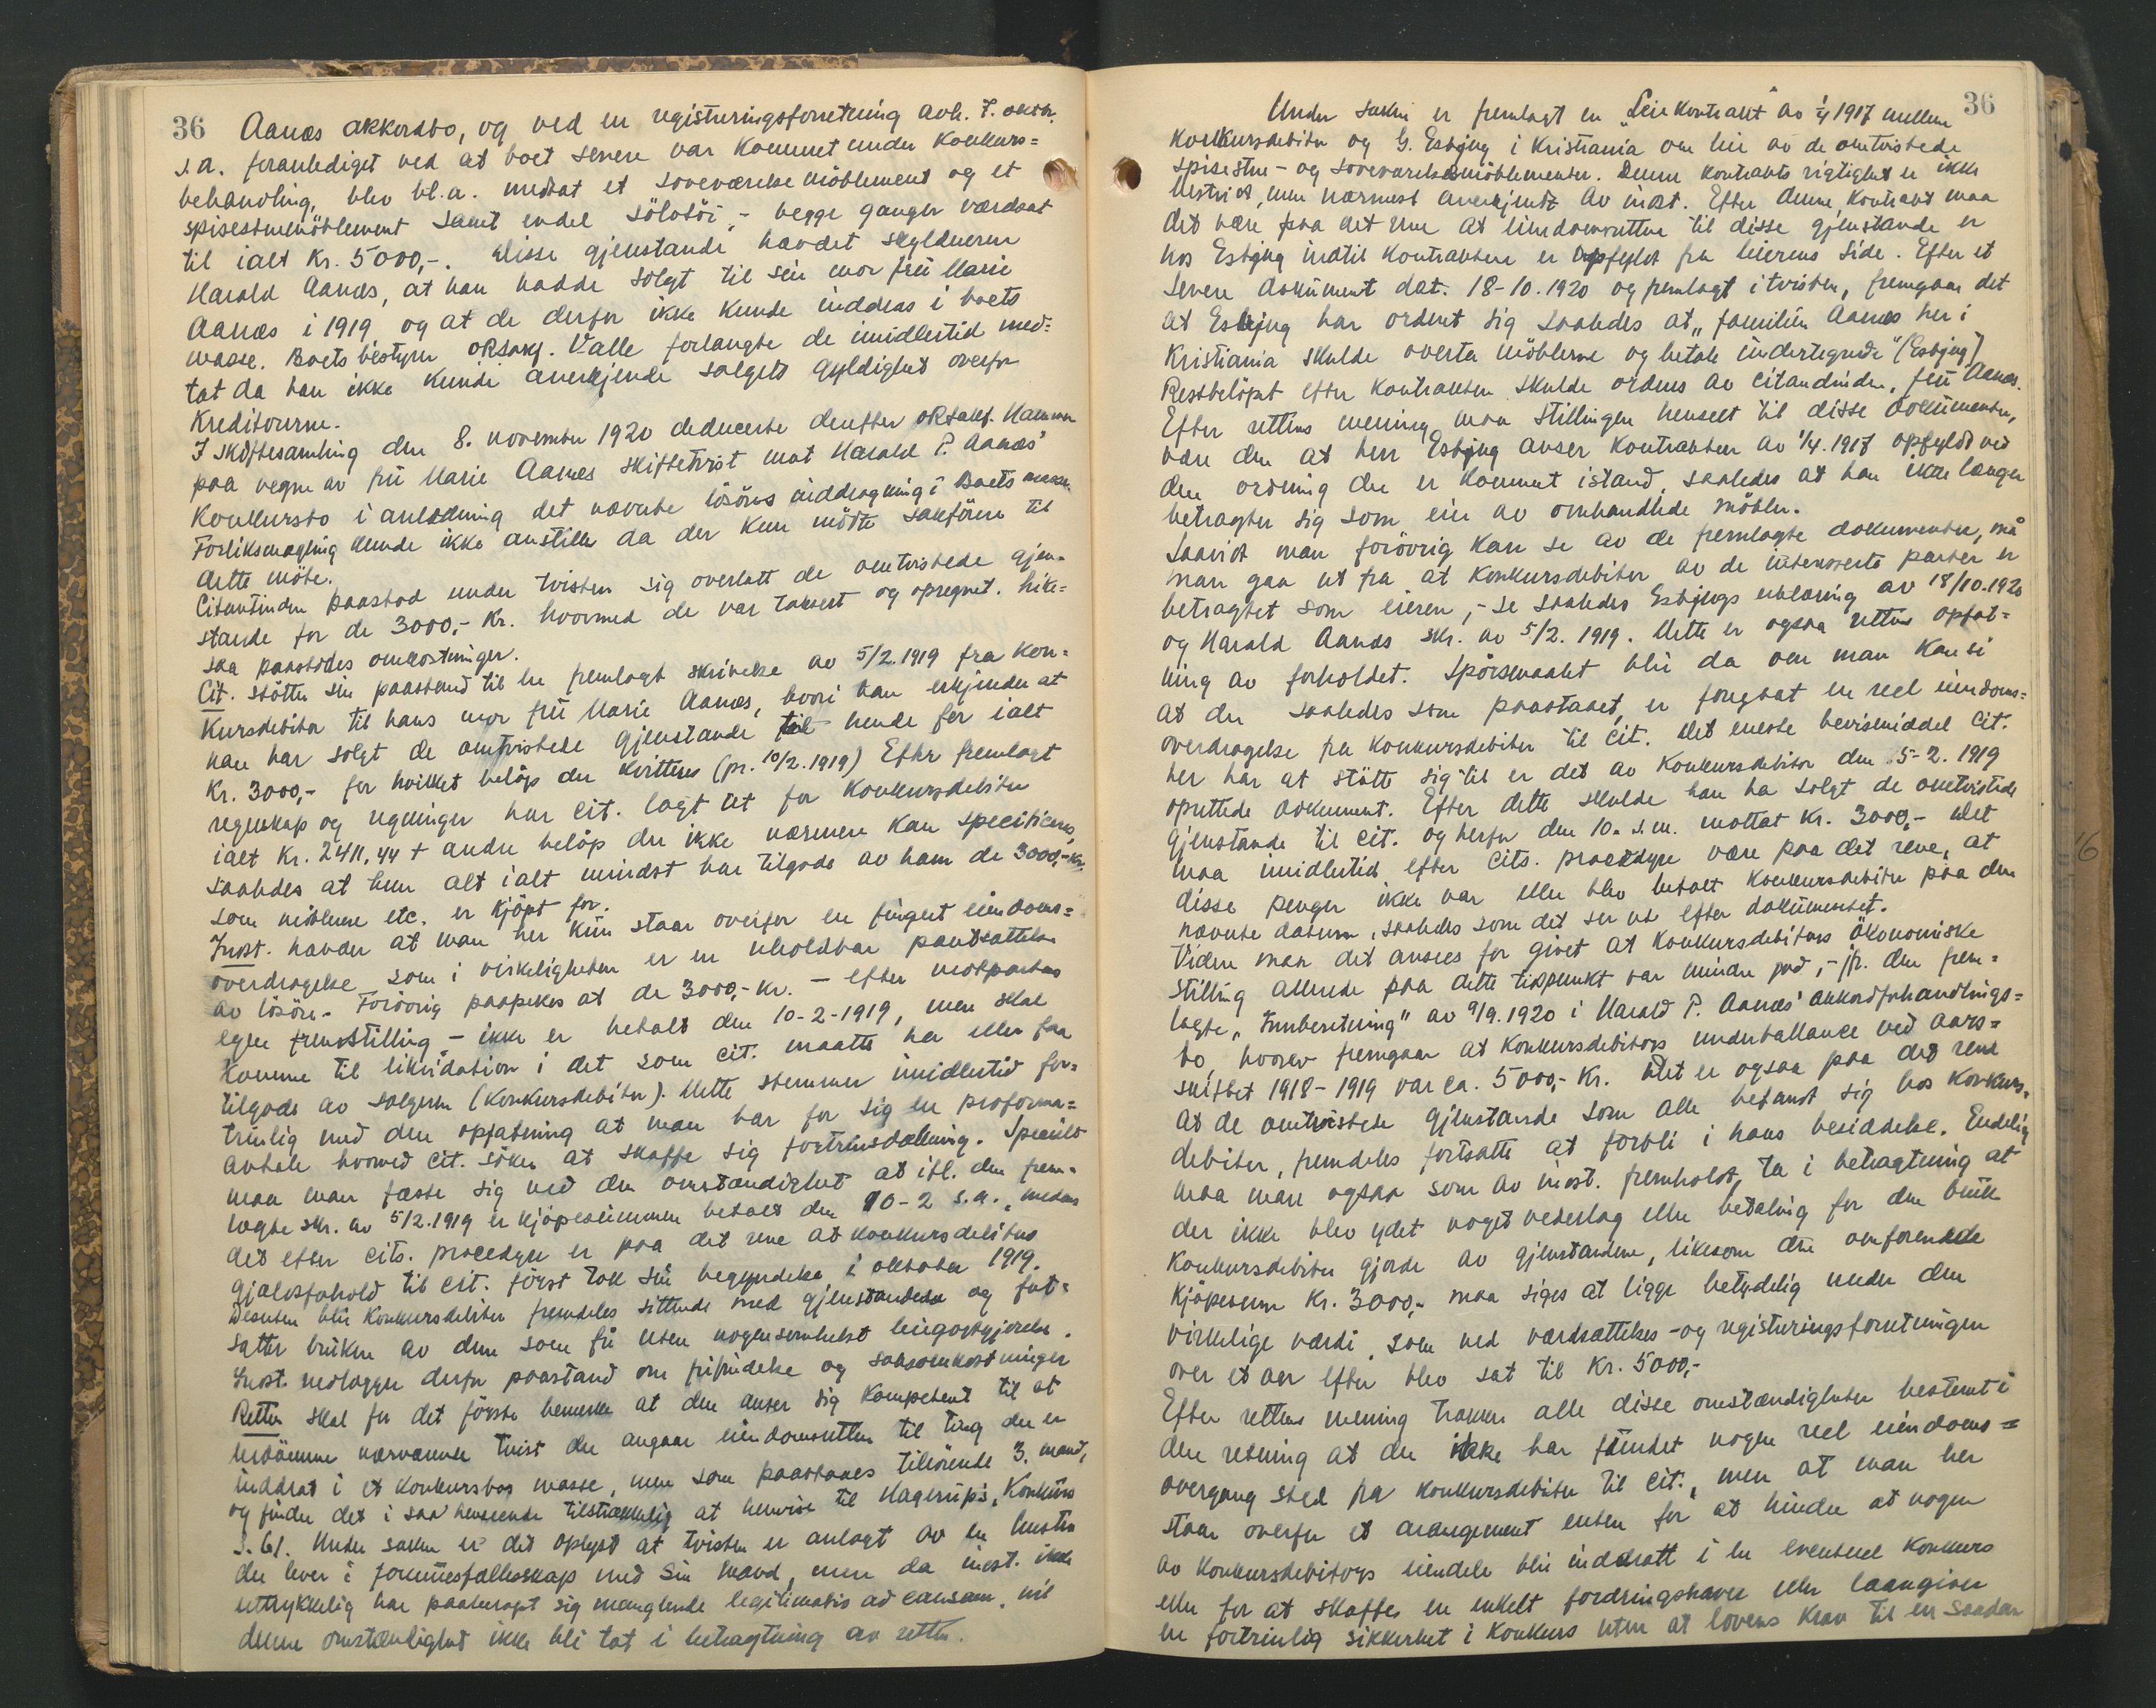 36 Aanæs akkordbo, og ved en registreringsforretning avh. 7. oktbr.
s.a. foranlediget ved at boet senere var kommet under konkurs=
behandling, blev bl.a. medtat et soveværelsemöblement og et
spisestuemöblement samt endel sölvtöi, - begge ganger værdsat
til ialt kr. 5000,-. Disse gjenstande hævdet skyldneren
Harald Aanæs, at han hadde solgt til sin mor frü Marie
Aanæs i 1919 og at de derfor ikke kunde inddras i boets
masse. Boets bestyrer oRsakf. Valle forlangte de imidlertid med=
tat da han ikke kunde anerkjende salgets gyldighet overfor
kreditorerne.
I skiftesamling den 8. november 1920 deducerte derefter oRsakf. Hammer
paa vegne av frü Marie Aanæs skiftetvist mot Harald P. Aanæs'
konkursbo i anledning det nævnte lösöres inddragning i boets masse.
Forliksmægling kunde ikke anstilles da der kun mötte sakförere til
dette möte.
Citantinden paastod under tvisten sig overlatt de omtvistede gjen-
stande for de 3000,- kr. hvormed de var taksert og opregnet. Like=
saa paastodes omkostninger.
Cit. stötter sin paastand til en fremlagt skrivelse av 5/2.1919 fra kon=
kursdebitor til hans mor frü Marie Aanæs, hvori han erkjender at
han har solgt de omtvistede gjenstande til hende for ialt
kr. 3000,- for hvilket belöp der kvitteres (pr. 10/2.1919) Efter fremlagt
regnskap og regninger har cit. lagt ut for konkursdebitor
ialt kr. 2411,44 + andre belöp der ikke nærmere kan specificeres,
saaledes at hun alt ialt mindst har tilgode av ham de 3000,- kr.
som möblerne etc. er kjöpt for.
Inst. hævder at man her kun staar overfor en fingert eiendoms=
overdragelse som i virkeligheten er en uholdbar pantsættelse
av lösöre. Forövrig paapekes at de 3000,- kr. - efter motpartens
egen fremstilling - ikke er betalt den 10-2-1919, men skal
komme til likvidation i det som cit. maatte ha eller faa
tilgode av sælgeren (konkursdebitor). Dette stemmer imidlertid for=
trinlig med den opfatning at man har for sig en proforma=
avtale hvorved cit. söker at skaffe sig fortrinsdækning. Specielt
maa man fæste sig ved den omstændighet at ifl. den frem=
lagte skr. av 5/2.1919 er kjöpesummen betalt den 10-2 s.a., medens
det efter cits. procedyre er paa det rene at konkursdebitors
gjeldsforhold til cit. först tok sin begyndelse i oktober 1919.
Desuten blir konkursdebitor fremdeles sittende med gjenstandene og fort=
sætter bruken av dem som för uten nogensomhelst leiegodtgjörelse.
Inst. nedlægger derfor paastand om frifindelse og saksomkostninger
Retten skal for det förste bemerke at den anser sig kompetent til at
paadömme nærværende tvist der angaar eiendomsretten til ting der er
inddrat i et konkursbos masse, men som paastaaes tilhörende 3. mand,
og finder det i saa henseende tilstrækkelig at henvise til Hagerup's "Konkurs"
s. 61. Under saken er det oplyst at tvisten er anlagt av en hustru
der lever i formuesfællesskap med sin mand, men da inst. ikke
uttrykkelig har paaberopt sig manglende legitimatio ad causam, vil
denne omstændighet ikke bli tat i betragtning av retten.
36
Under saken er fremlagt en "Leiekontrakt" av 1/4 1917 mellem
konkursdebitor og G. Esbjug i Kristiania om leie av de omtvistede
spisestue- og soveværelsesmöblementer. Denne kontrakts rigtighet er ikke
bestridt, men nærmest anerkjendt av inst. Efter denne kontrakt maa
det være paa det rene at eiendomsretten til disse gjenstande er
hos Esbjug indtil kontrakten er opfyldt fra leierens side. Efter et
senere dokument dat. 18-10.1920 og fremlagt i tvisten, fremgaar det
at Esbjug har ordnet sig saaledes at "familien Aanæs her i
Kristiania skulde overta möblerne og betale undertegnede" (Esbjug)
Restbelöpet efter kontrakten skulde ordnes av citantinden, frü Aanæs.
Efter rettens mening maa stillingen henseet til disse dokumenter,
være den at herr Esbjug anser kontrakten av 1/4.1917 opfyldt ved
den ordning der er kommet istand, saaledes at han ikke længer
betragter sig som eier av omhandlede möbler.
Saavidt man forövrig kan se av de fremlagte dokumenter, må
man gaa ut fra at konkursdebitor av de interesserte parter er
betragtet som eieren, - se saaledes Esbjugs erklæring av 18/10.1920
og Harald Aanæs skr. av 5/2. 1919. Dette er ogsaa rettens opfat=
ning av forholdet. Spörsmaalet blir da om man kan si
at der saaledes som paastaaet, er foregaat en reel eiendoms=
overdragelse fra konkursdebitor til cit. Det eneste bevismiddel cit.
her har at stötte sig til er det av konkursdebitor den 5-2. 1919
oprettede dokument. Efter dette skulde han ha solgt de omtvistede
gjenstande til cit. og herfor den 10. s.m. mottat kr. 3000,- Det
maa imidlertid efter cits. procedyre være paa det rene, at
disse penger ikke var eller blev betalt konkursdebitor paa den
nævnte datum, saaledes som det ser ut efter dokumentet.
Videre maa det ansees for givet at konkursdebitors ökonomiske
stilling allerede paa dette tidspunkt var mindre god, - jfr. den frem=
lagte "Innberetning" av 9/9.1920 i Harald P. Aanæs' akkordforhandlings=
bo, hvorav fremgaar at konkursdebitors underballance ved aars=
skiftet 1918-1919 var ca. 5000,- kr. Det er ogsaa paa det rene
at de omtvistede gjenstande som alle befandt sig hos konkurs=
debitor, fremdeles fortsatte at forbli i hans besiddelse. Endelig
maa man ogsaa som av inst. fremholdt, ta i betragtning at
der ikke blev ydet noget vederlag eller betaling for den bruk
konkursdebitor gjorde av gjenstandene, likesom den omforenede
kjöpesum kr. 3000,- maa siges at ligge betydelig under den
virkelige værdi, som ved værdsættelses- og registreringsforretningen
over et aar efter blev sat til kr. 5000,-
Efter rettens mening trækker alle disse omstændigheter bestemt i
den retning at der ikke har fundet nogen reel eiendoms=
overgang sted fra konkursdebitor til cit., men at man her
staar overfor et arangement enten for at hindre at nogen
av konkursdebitors eiendele blir inddratt i en eventuel konkurs
eller for at skaffe en enkelt fordringshaver eller laangiver
en fortrinlig sikkerhet i konkurs uten at lovens krav til en saadan